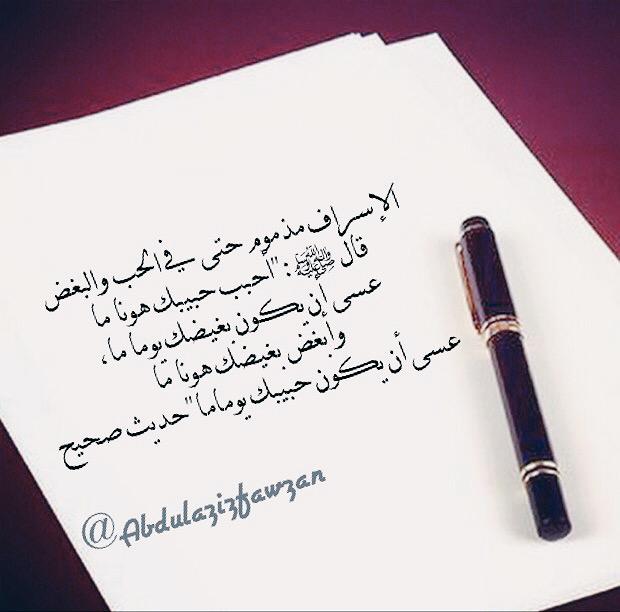 الإسراف مذموم حتى في الحب والبغض
قال ﷺ : "أحبب حبيبك هونا ما
عسى أن يكون بغيضك يوما ما،
وأبغض بغيضك هونا ما
عسى أن يكون حبيبك يوماما" حديث صحيح
@Abdulazizfawzan